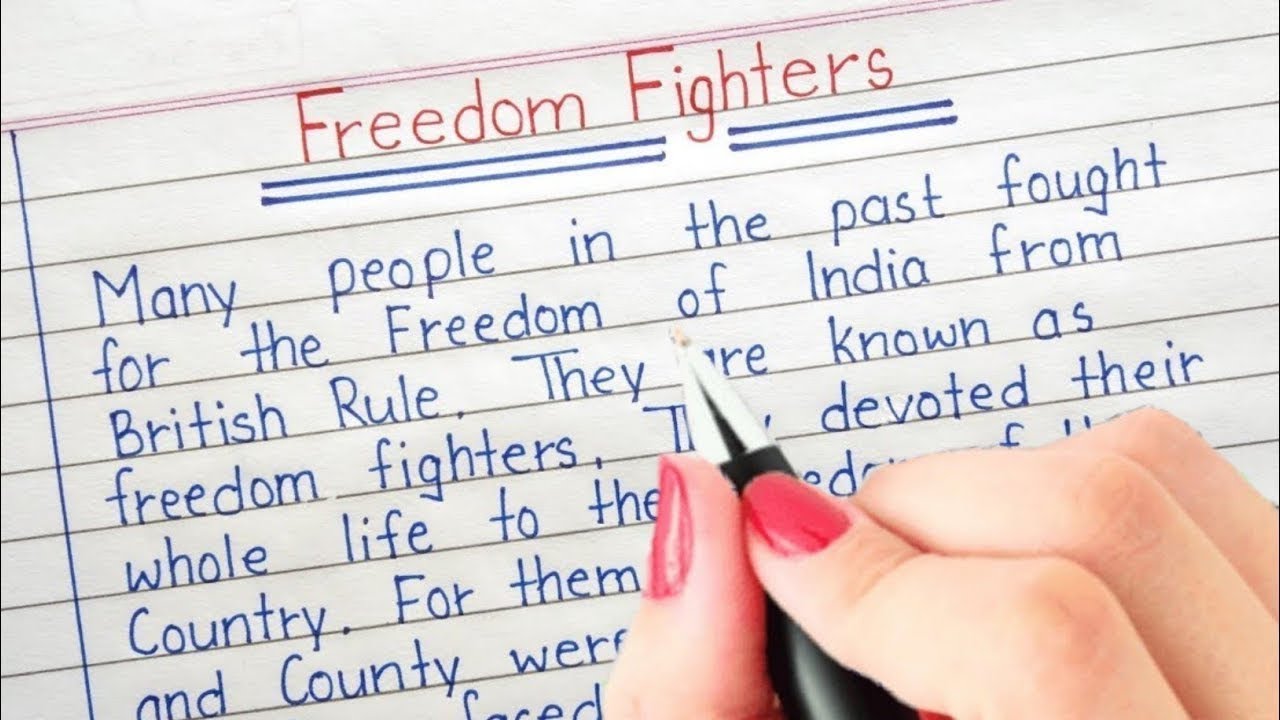 Freedom Fighters
Many people in the past fought
for the Freedom of India from
British Rule. They are known as
freedom fighters. devoted their
whole life to the
Country. For them
and County were
faced